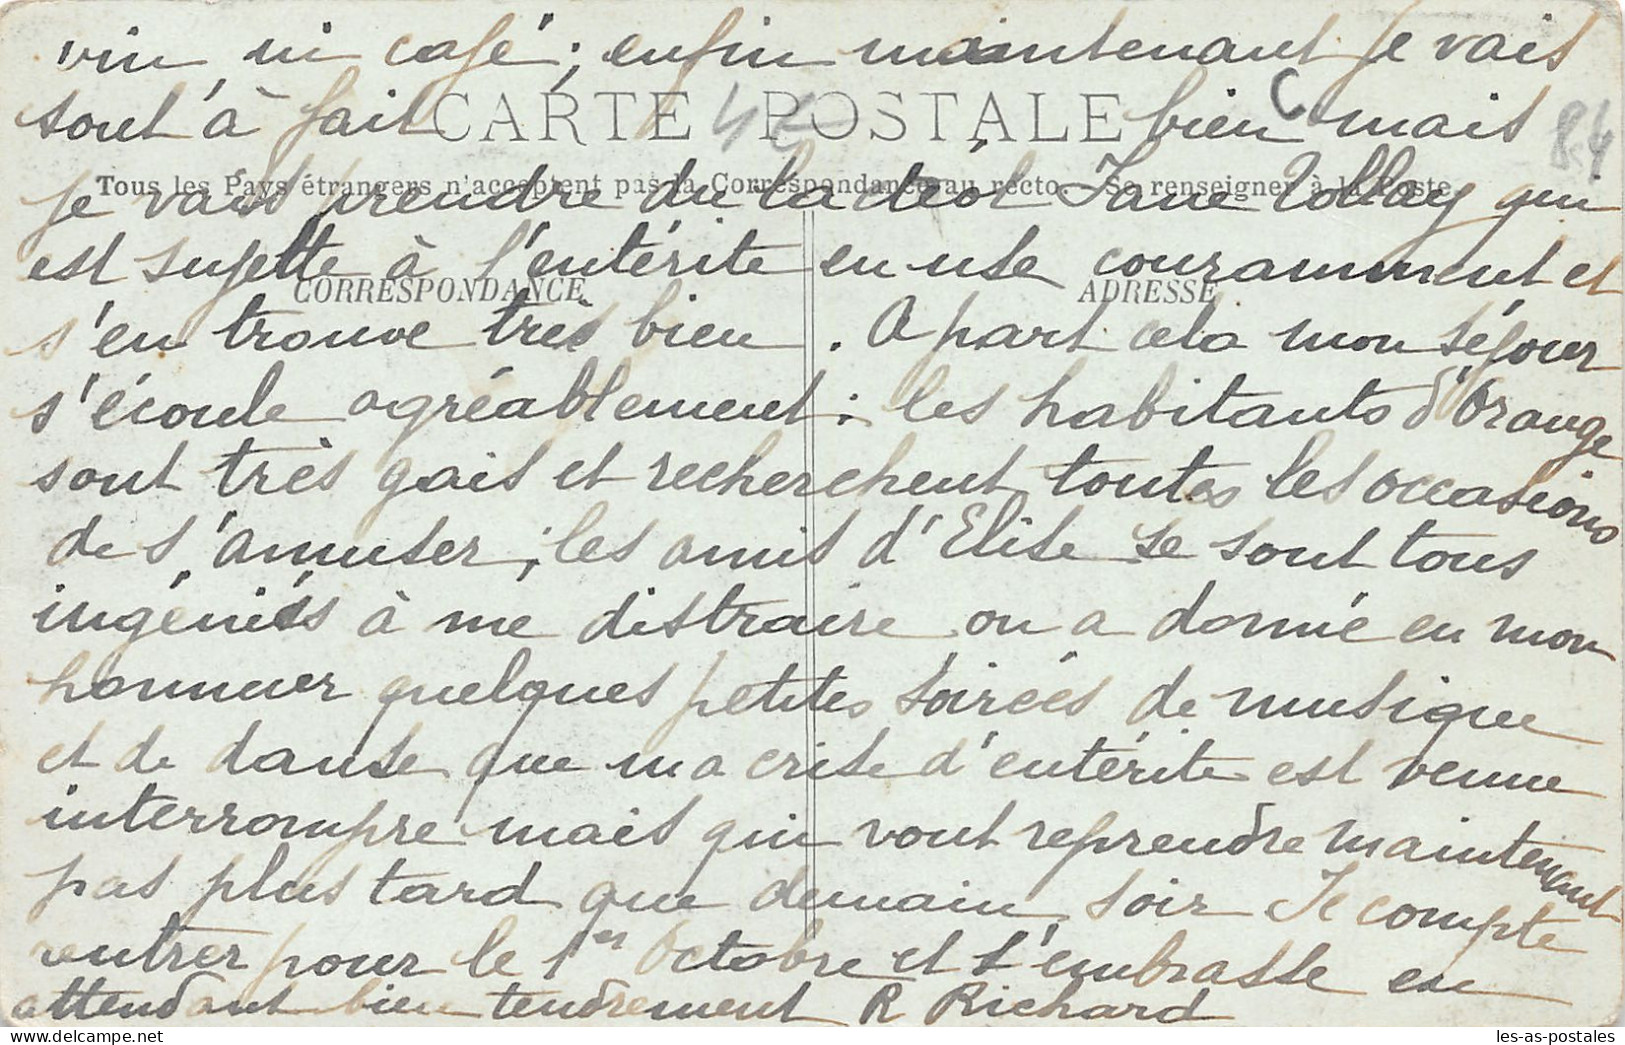 vin, ni café ; enfin maintenant je vais
tout à fait bien mais
CARTE POSTALE
84
Tous les Pays étrangers n'acceptent pas la Correspondance au recto - Se renseigner à la Poste
je vais prendre du lactéol Jane Tollay qui
est sujette à l'entérite en use couramment et
CORRESPONDANCE
ADRESSE
s'en trouve très bien. A part cela mon séjour
s'écoule agréablement : les habitants d'Orange
sont très gais et recherchent toutes les occasions
de s'amuser ; les amis d'Elise se sont tous
ingéniés à me distraire on a donné en mon
honneur quelques petites soirées de musique
et de danse que ma crise d'entérite est venue
interrompre mais qui vont reprendre maintenant
pas plus tard que demain soir Je compte
rentrer pour le 1er Octobre et t'embrasse en
attendant bien tendrement R Richard
les-as-postales